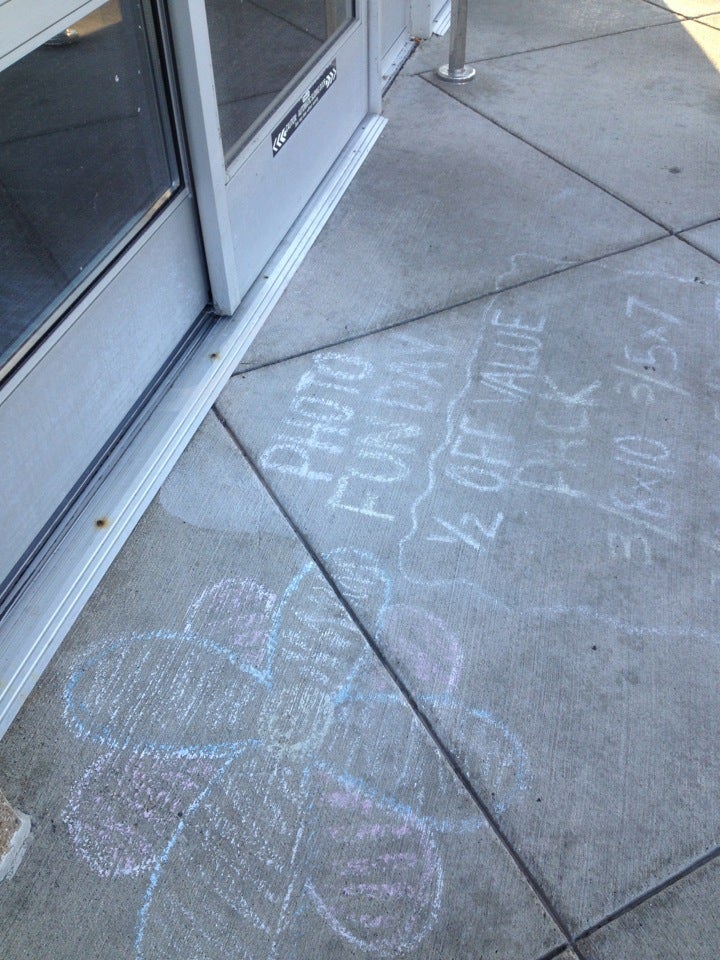 PHOTO
FUN DAY
½ OFF VALUE
PACK
3/8x10 3/5x7